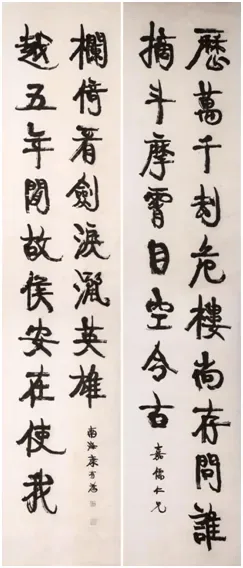 歷萬千劫危樓尚存問誰
摘斗摩霄目空今古
嘉儒仁兄
越五年間故侯安在使我
欄倚看劍淚灑英雄
南海康有為